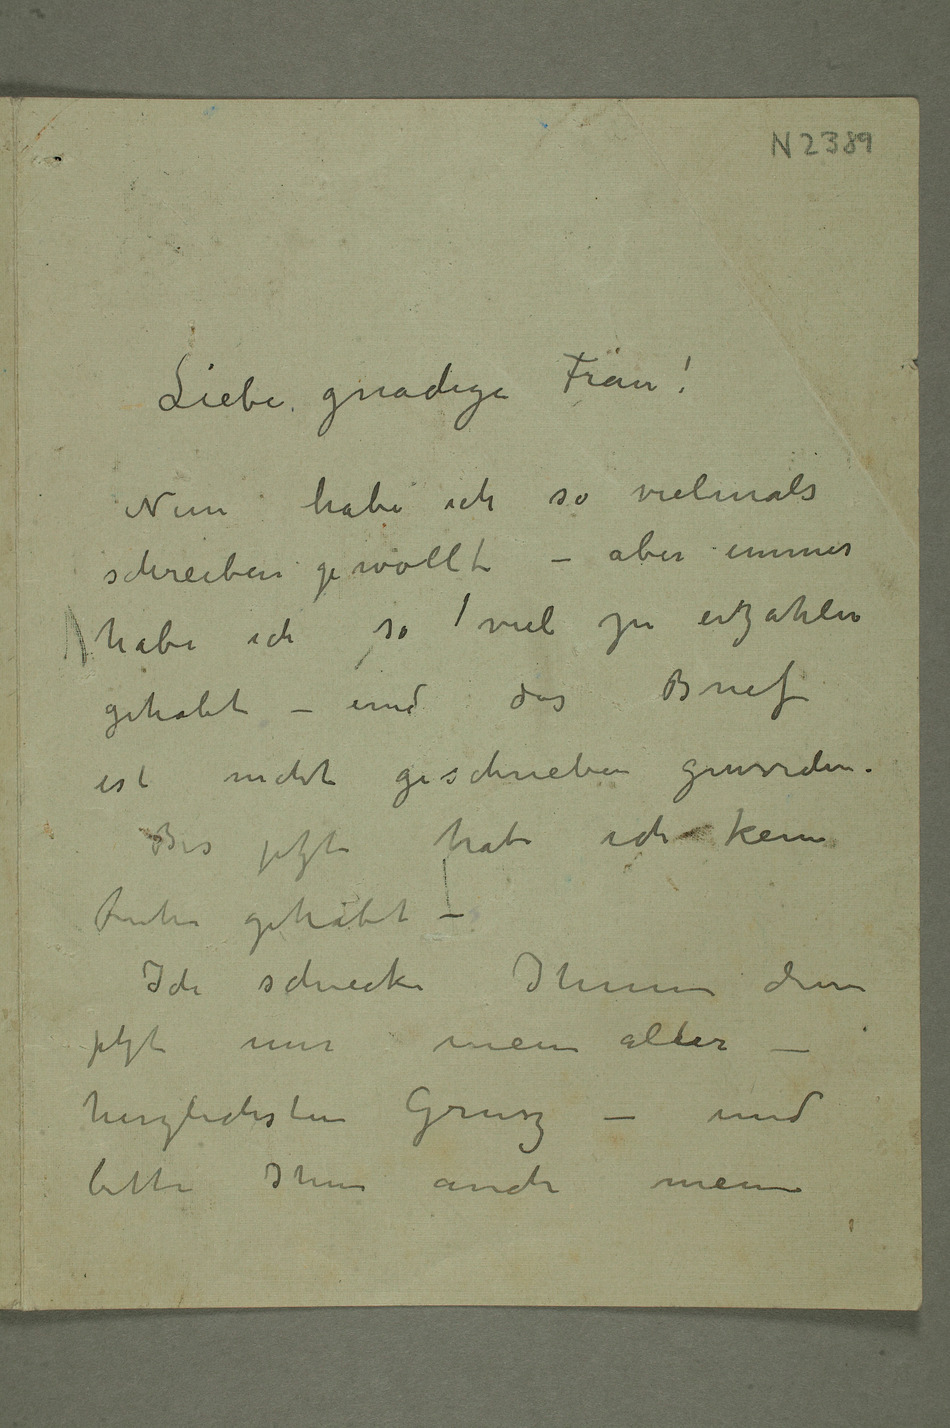 N 2389
Liebe gnadige Frau!
Nun habe ich so vielmals
schreiben gewollt – aber immer
habe ich so viel zu erzahlen
gehabt – und das Brief
ist nicht geschrieben geworden.
Bis jetzt hab ich kein
Ruhe gehabt –
Ich schicke Ihnen denn
jetzt nur mein aller –
herzlichsten Grusz – und
bitte Ihnen auch mein